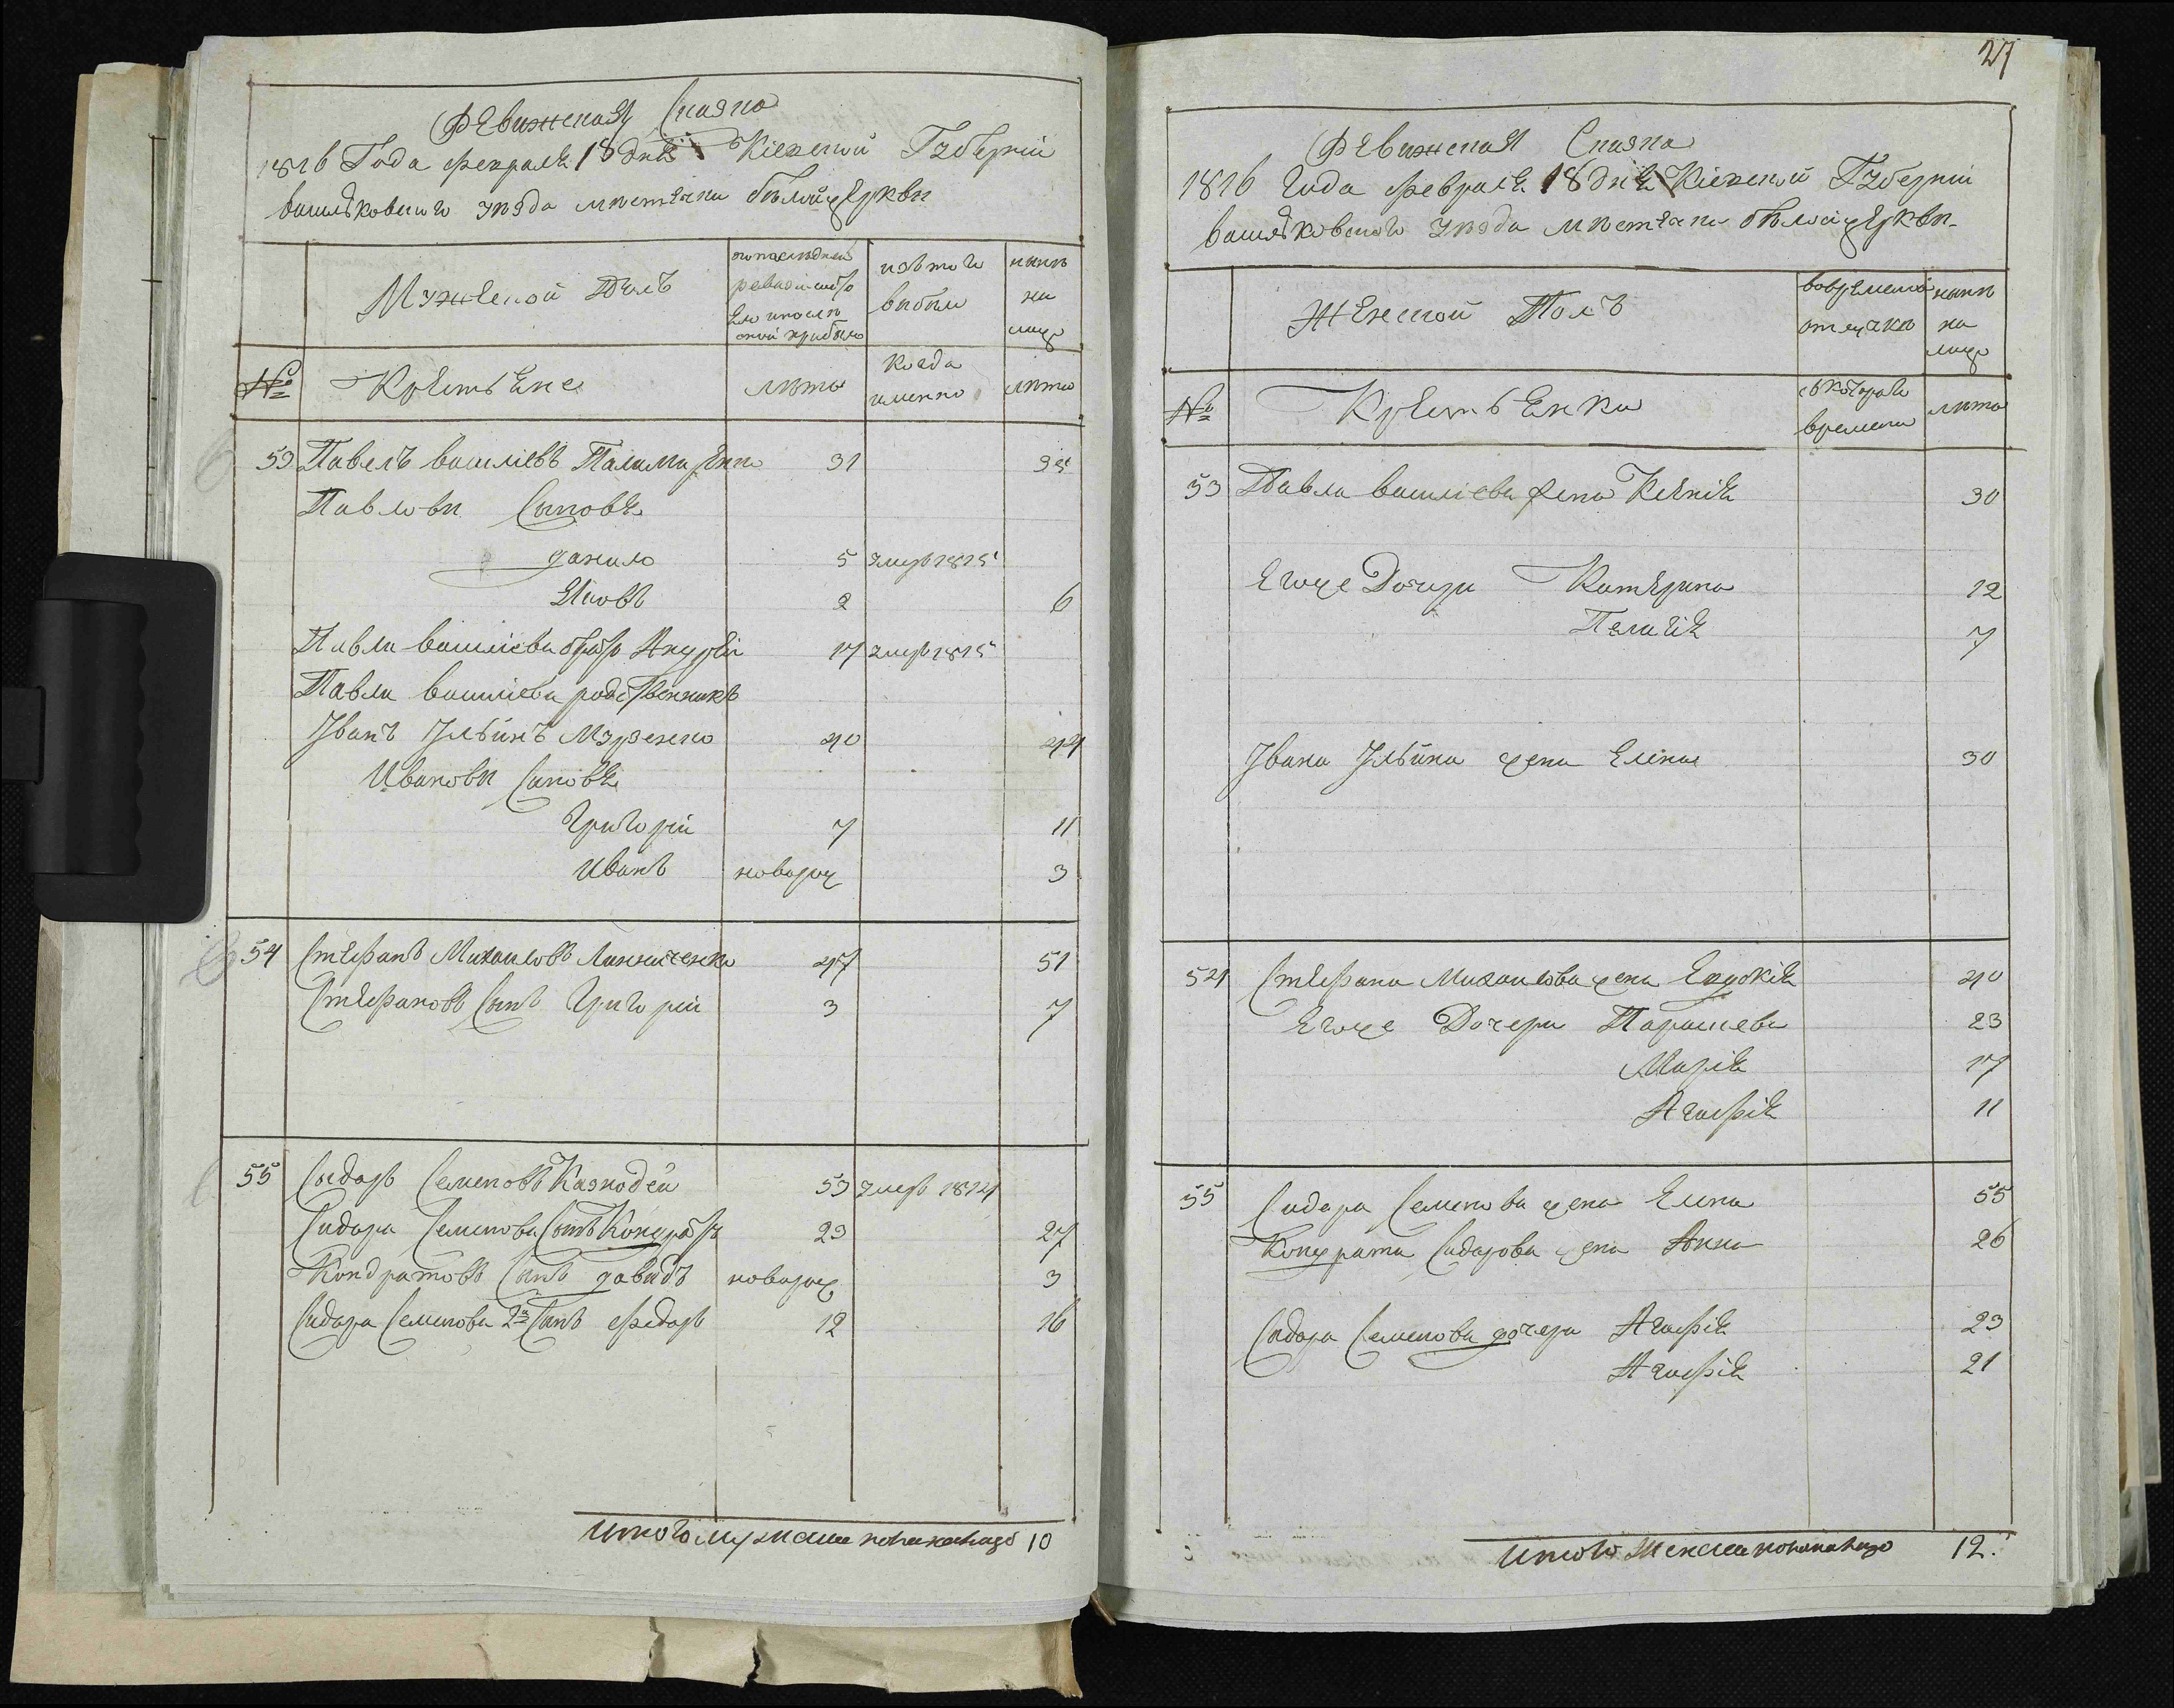 Ревизская Сказка
1816 Года февраля 18 дня Кіевской Губерніи
василковского уезда местечка белойцеркви
Мужеской Полъ
по последней
ревизіи состо
яло и после
оной прибыло
изътого
выбыли
ныне
на
лицо
№
Крестьяне
лета
когда
именно
лета
53 Павелъ василіевъ Паламаренко 31 35
Павлови Сыновя
данило 5 умеръ 1815
Яковъ 2 6
Павла василіева братъ Андрей 17 умеръ 1815
Павла василіева родственникъ
Іванъ Ільинъ Мурзенко 40 44
Ивановы Сыновя
Григорій 7 11
Иванъ новорож 3
54 Стефанъ Михаиловъ Линниченко 47 51
Стефановъ Сынъ Григорій 3 7
55 Сидаръ Семеновъ Казнодей 53 умеръ 1814
Сидара Семенова Сынъ Кондратъ 23 27
Кондратовъ Сынъ давидъ новорож 3
Сидара Семенова 2й Сынъ федаръ 12 16
Итого мужеска пола налицо 10
27
Ревизская Сказка
1816 Года февраля 18 дня Кіевской Губерніи
василковского уезда местечка белойцеркви
Женской Полъ
вовременной
отлучке
ныне
на
лицо
№
Крестьянки
съкоторого
времени
лета
53 Павла василіева жена Ксенія 30
Егоже Дочери Катерина 12
Пелагія 7
Івана Ільина жена Елена 30
54 Стефана Михаилова жена Евдокія 40
Егоже Дочери Параскева 23
Марія 17
Агафія 11
55 Сидара Семенова жена Елена 55
Кондрата Сидарова жена Анна 26
Сидара Семенова дочери Агафія 23
Агафія 21
Итого женска пола налицо 12.